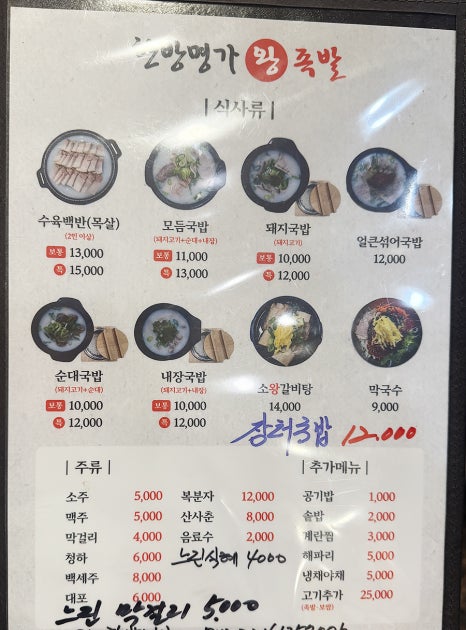 한방명가 왕 족발
| 식사류 |
수육백반(목살)
(2인 이상)
보통 13,000
특 15,000
모듬국밥
(돼지고기+순대+내장)
보통 11,000
특 13,000
돼지국밥
(돼지고기)
보통 10,000
특 12,000
얼큰섞어국밥
12,000
순대국밥
(돼지고기+순대)
보통 10,000
특 12,000
내장국밥
(돼지고기+내장)
보통 10,000
특 12,000
소왕갈비탕
14,000
막국수
9,000
장터국밥 12.000
| 주류 |
소주 5,000
맥주 5,000
막걸리 4,000
청하 6,000
백세주 8,000
대포 6,000
복분자 12,000
산사춘 8,000
음료수 2,000
느린식혜 4000
느린 막걸리 5,000
| 추가메뉴 |
공기밥 1,000
솥밥 2,000
계란찜 3,000
해파리 5,000
냉채야채 5,000
고기추가 25,000
(족발·보쌈)